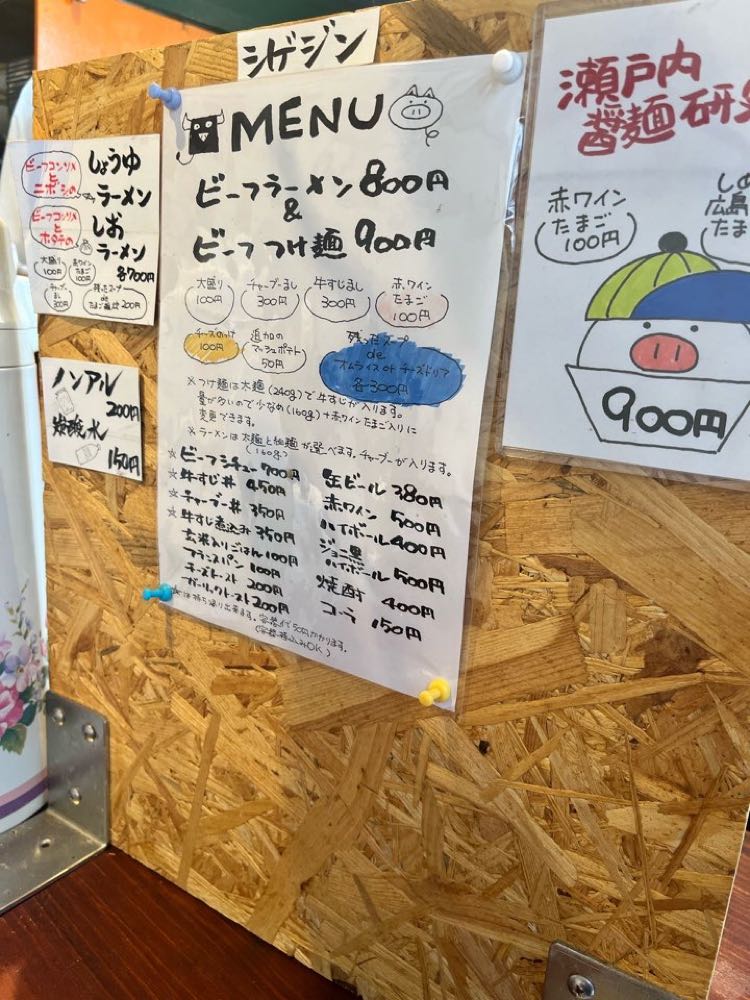 シゲジン
MENU
ビーフラーメン 800円
&
ビーフつけ麺 900円
大盛り
100円
チャーブーまし
300円
牛すじまし
300円
赤ワイン
たまご
100円
チーズのっけ
100円
追加の
マッシュポテト
50円
残ったスープ
de
オムライス or チーズドリア
各300円
※つけ麺は太麺(240g)で牛すじが入ります。
量が多いので少なめ(160g)+赤ワインたまご入りに
変更できます。
※ラーメンは太麺と細麺が選べます。チャーブーが入ります。
(160g)
☆ビーフシチュー 700円
☆牛すじ丼 450円
☆チャーブー丼 350円
☆牛すじ煮込み 350円
玄米入りごはん 100円
フランスパン 100円
チーズトースト 200円
ガーリックトースト 200円
缶ビール 380円
赤ワイン 500円
ハイボール 400円
ジョニ黒
ハイボール 500円
焼酎 400円
コーラ 150円
☆は持ち帰り出来ます。容器代50円かかります。
(容器持込みOK)
ビーフコンソメ
と
ニボシの
しょうゆ
ラーメン
ビーフコンソメ
と
ホタテの
しお
ラーメン
各700円
大盛り
100円
赤ワイン
たまご
100円
チャーブー
まし
300円
残ったスープ
de
たまご雑炊 200円
ノンアル
200円
炭酸水
150円
瀬戸内
醤麺研
赤ワイン
たまご
100円
しめ
広島
たま
900円